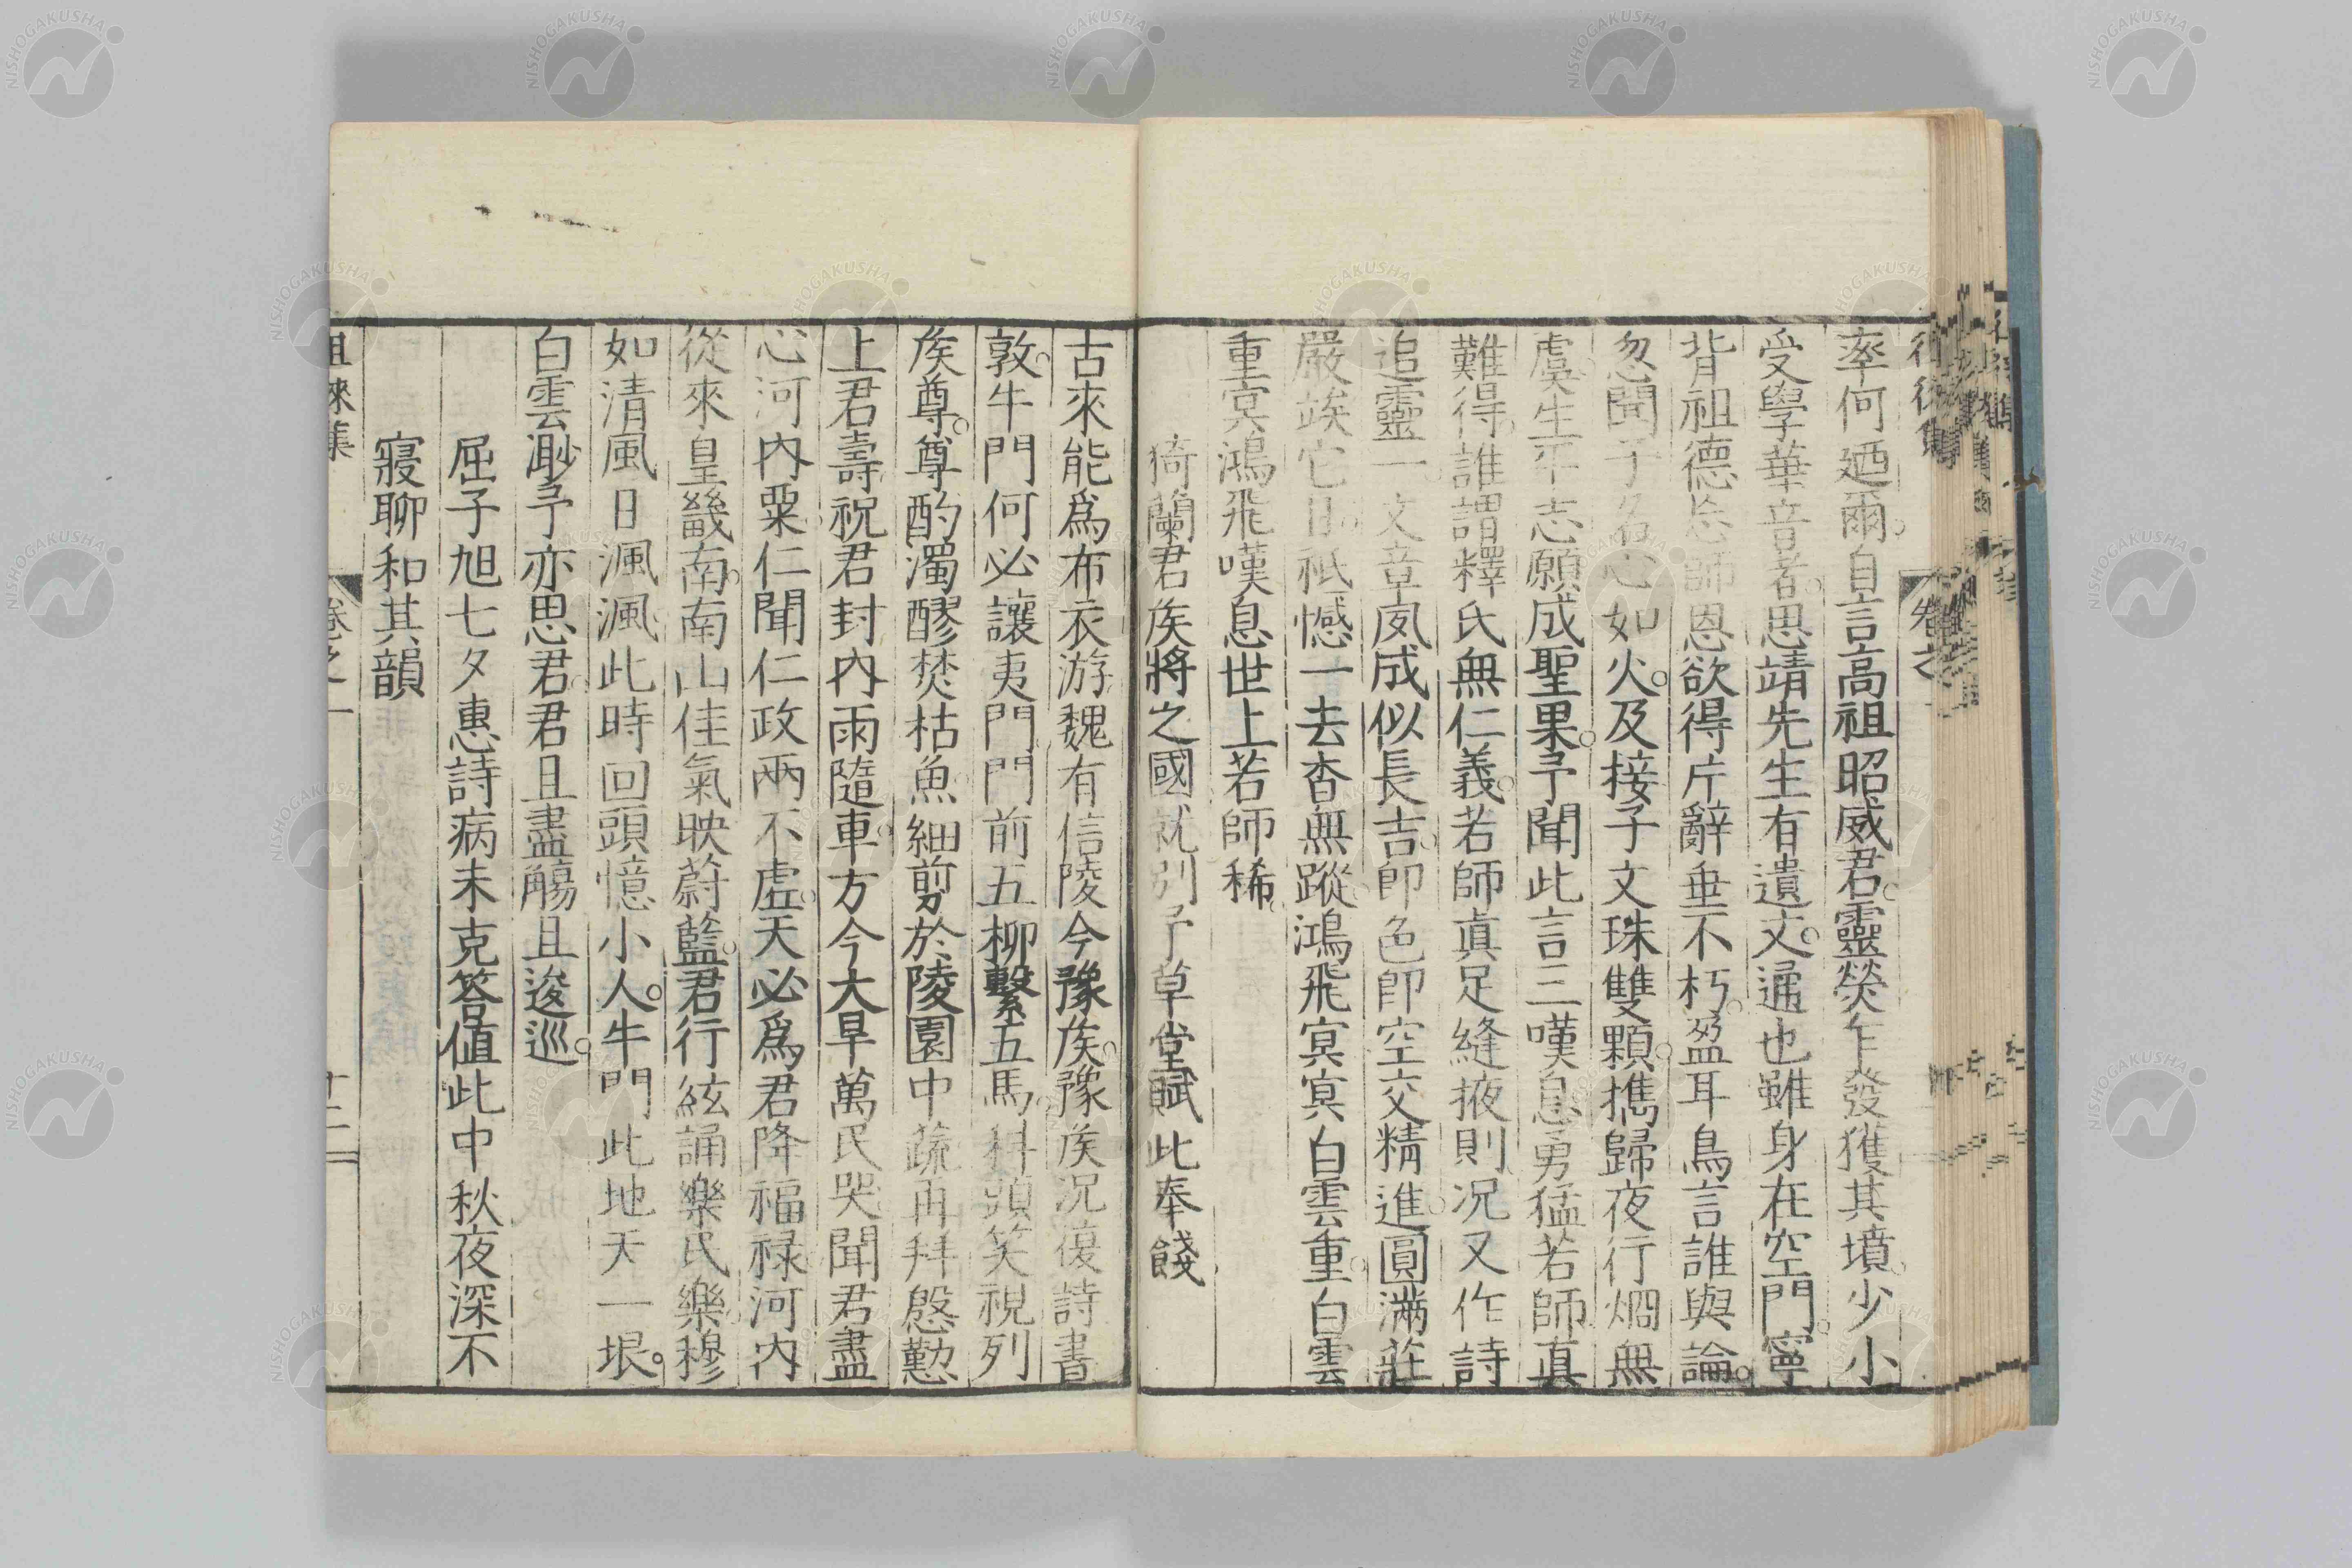 率何廼爾自言高祖昭威君靈熒乍發獲其墳少小
受學華音者思靖先生有遺文通也雖身在空門寧
背祖德忘師恩欲得片辭垂不朽盈耳鳥言誰與論
忽聞子名心如火及接子文珠雙顆携歸夜行烱無
虞生平志願成聖果予聞此言三嘆息勇猛若師眞
難得誰謂釋氏無仁義若師眞足縫掖則况又作詩
追靈一文章夙成似長吉卽色卽空交精進圓滿莊
嚴竢它日祇憾一去杳無蹤鴻飛冥冥白雲重白雲
重冥鴻飛嘆息世上若師稀
猗蘭君矦將之國就別予草堂賦此奉餞
古來能爲布衣游魏有信陵今豫矦豫矦况復詩書
敦牛門何必讓夷門門前五柳繫五馬科頭笑視列
矦尊尊酌濁醪焚枯魚細剪於陵園中蔬再拜慇懃
上君壽祝君封內雨隨車方今大旱萬民哭聞君盡
心河內粟仁聞仁政兩不虛天必爲君降福禄河內
從來皇畿南南山佳氣映蔚藍君行絃誦樂民樂穆
如清風日渢渢此時回頭憶小人牛門此地天一垠
白雲渺予亦思君君且盡觴且逡巡
屈子旭七夕惠詩病未克答値此中秋夜深不
寢聊和其韻
徂徠集
卷之一
十二